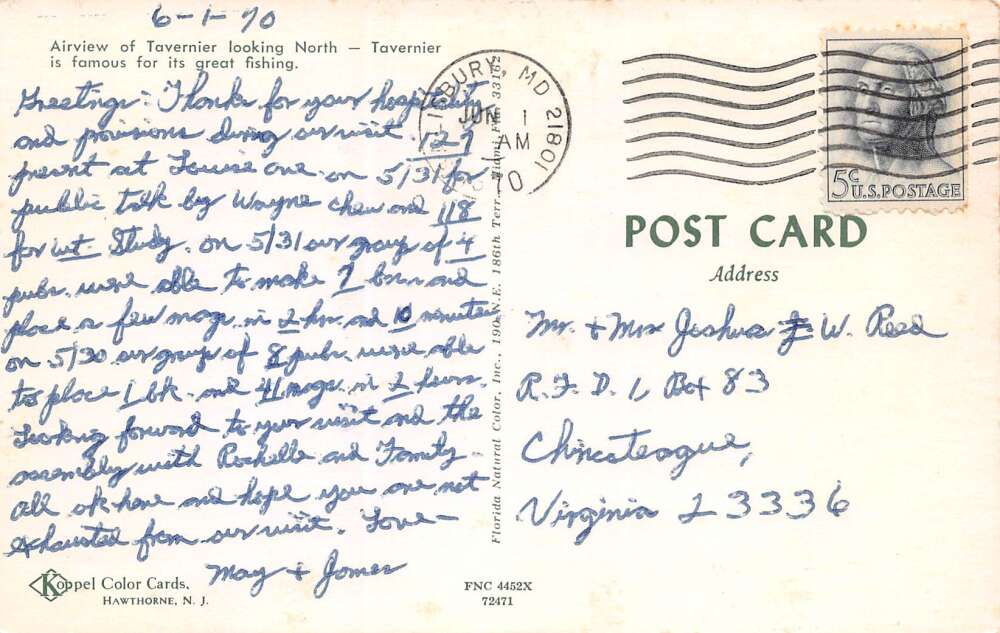 6-1-70
Airview of Tavernier looking North — Tavernier
is famous for its great fishing.
Greetings: Thanks for your hospitality
and provisions during our visit. 127
present at Louise one on 5/31 for
public talk by Wayne Chew and 118
for Wt. Study. On 5/31 our group of 4
pubs. were able to make 7 and
place a few mags. in 2 hrs. and 10 minutes
on 5/30 our group of 8 pubs. were able
to place 1 bk. and 41 mags. in 2 hours.
Looking forward to your visit and the
assembly with Rochelle and Family.
All ok here and hope you are not
exhausted from our visit. Love—
May & James
Koppel Color Cards,
HAWTHORNE, N. J.
FNC 4452X
72471
Florida Natural Color, Inc., 190 N.E. 186th Terr., Miami, Fla. 33162
ISBURY, MD 21801
JUN 1
AM
5c U.S. POSTAGE
POST CARD
Address
Mr. & Mrs Joshua W. Reed
R.F.D. 1, Box 83
Chincoteague,
Virginia 23336